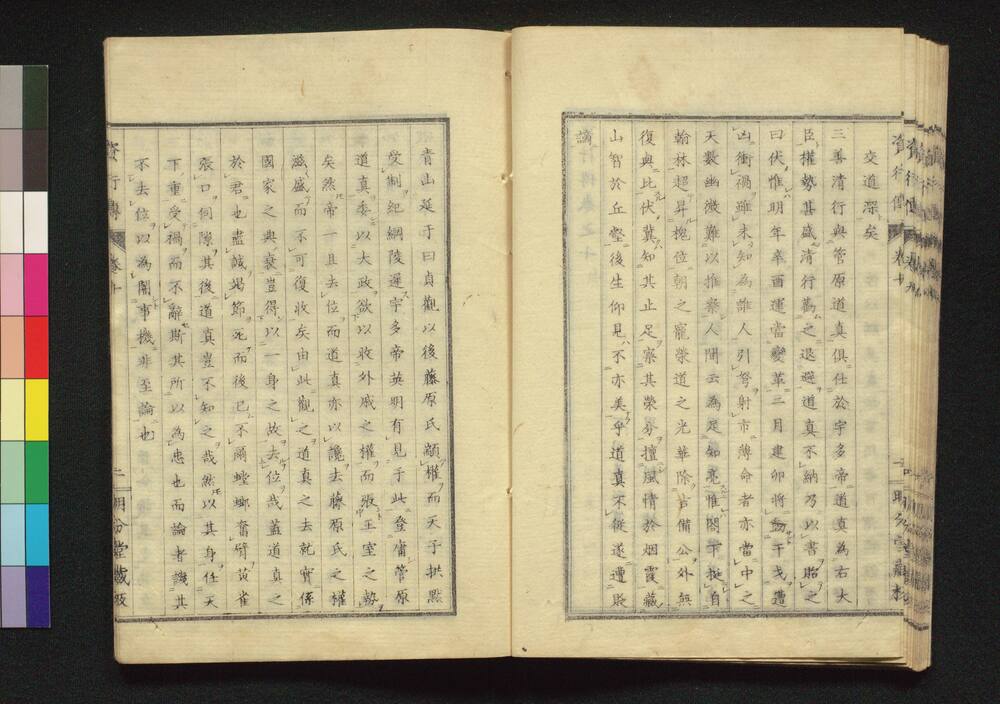 交道深矣
三善清行與管原道真俱仕於宇多帝道真為右大
臣權勢甚盛清行勸之退避道真不納乃以書貽之
曰伏惟明年辛酉運當變革二月建卯將動干戈遭
凶衝禍雖未知為誰人引弩射市薄命者亦當中之
天數幽微難以推察人間云為足知亮惟閤下挺自
翰林超昇槐位朝之寵榮道之光華除吉備公外無
復與比伏冀知其止足察其榮分擅風情於烟霞藏
山智於丘壑後生仰見不亦美乎道真不從遂遭貶
謫
青山延于曰貞觀以後藤原氏顓權而天子拱默
受制紀綱陵遲宇多帝英明有見于此登庸管原
道真委以大政欲以收外戚之權而張王室之勢
矣然帝一旦去位而道真亦以讒去藤原氏之權
滋盛而不可復收矣由此觀之道真之去就實係
國家之興衰豈得以一身之故去位哉蓋道真之
於君也盡誠竭節死而後已不顧螳螂奮臂黃雀
張口伺隙其後道真豈不知之哉然以其身任天
下重受禍而不辭斯其所以為忠也而論者譏其
不去位以為闇事機非至論也
資行傳
卷十
二
明分堂藏板